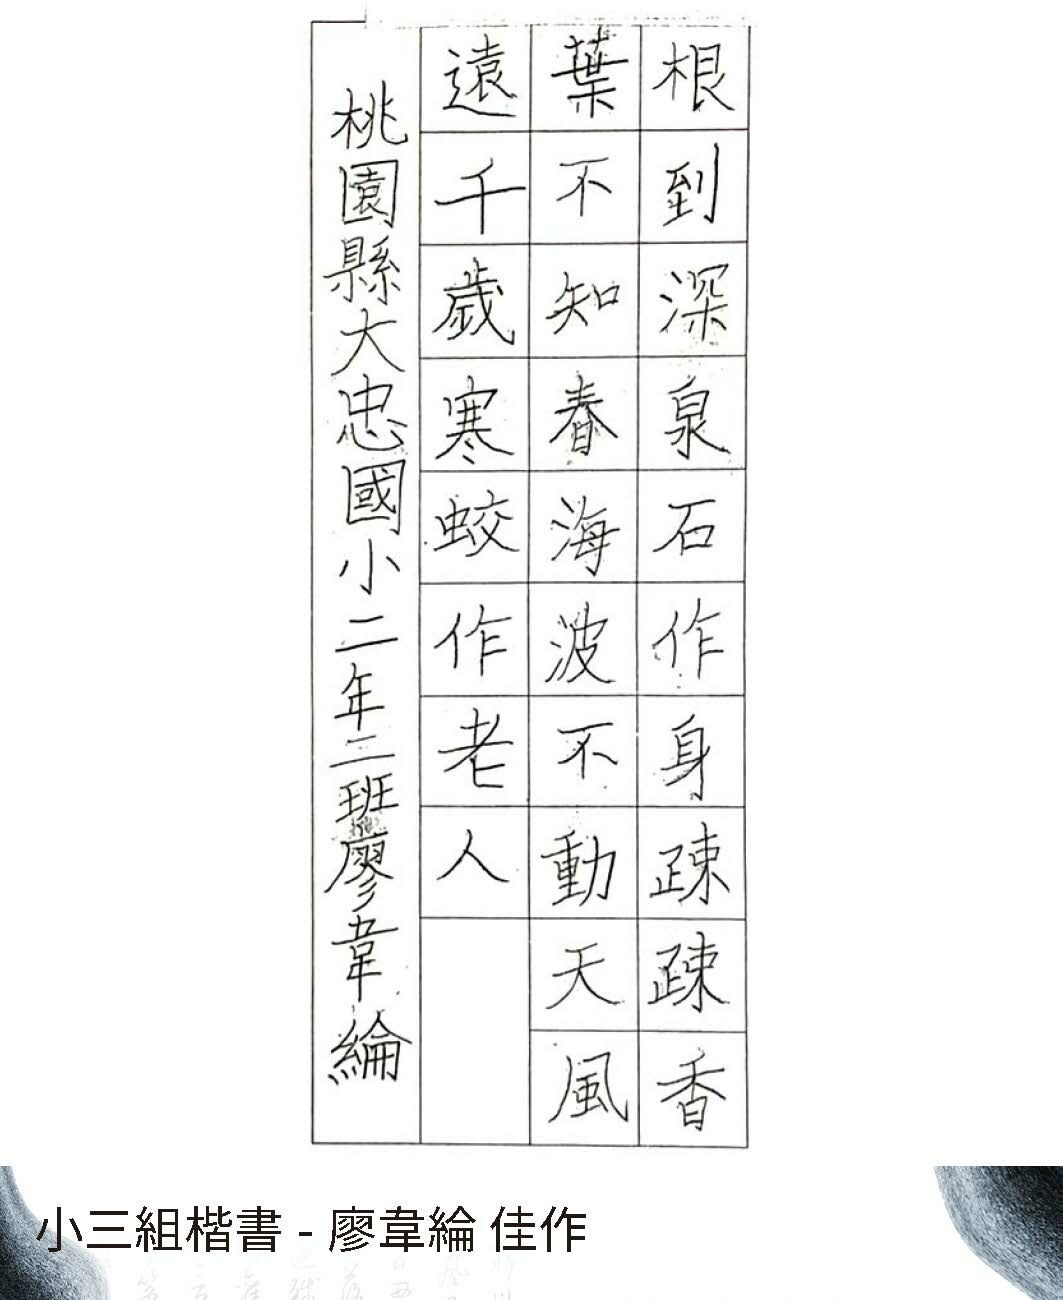 根到深泉石作身疎疎香
葉不知春海波不動天風
遠千歲寒蛟作老人
桃園縣大忠國小二年二班廖韋綸
小三組楷書 - 廖韋綸 佳作